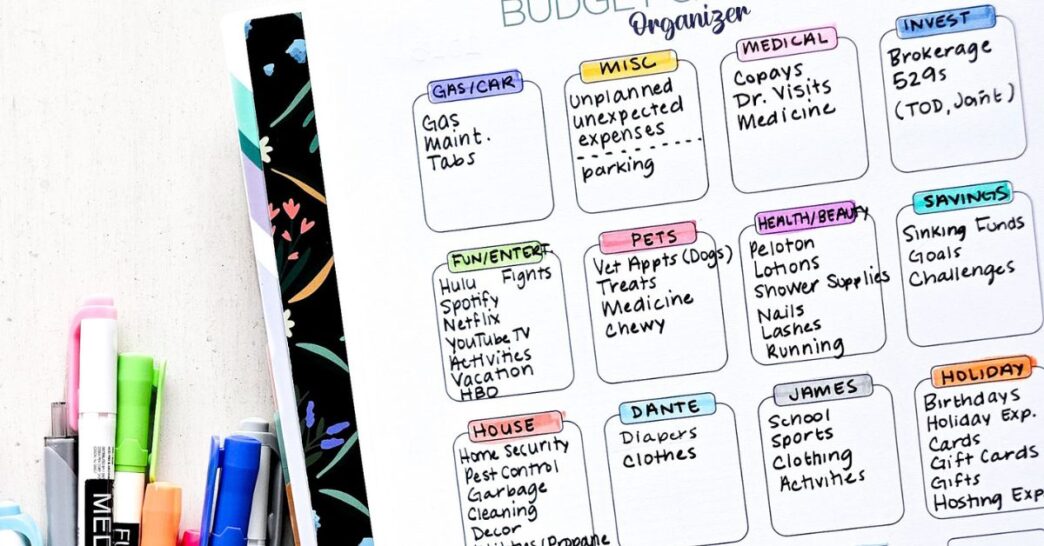 BUDGET
Organizer
GAS/CAR
Gas
Maint.
Tabs
MISC
unplanned
unexpected
expenses
parking
MEDICAL
Copays
Dr. Visits
Medicine
INVEST
Brokerage
529s
(TOD, Joint)
FUN/ENTERT.
Hulu Fights
Spotify
Netflix
YouTube TV
Activities
Vacation
HBO
PETS
Vet Appts (Dogs)
Treats
Medicine
Chewy
HEALTH/BEAUTY
Peloton
Lotions
Shower Supplies
Nails
Lashes
Running
SAVINGS
Sinking Funds
Goals
Challenges
HOUSE
Home Security
Pest Control
Garbage
Cleaning
Decor
DANTE
Diapers
Clothes
JAMES
School
Sports
Clothing
Activities
HOLIDAY
Birthdays
Holiday Exp.
Cards
Gift Cards
Gifts
Hosting Exp